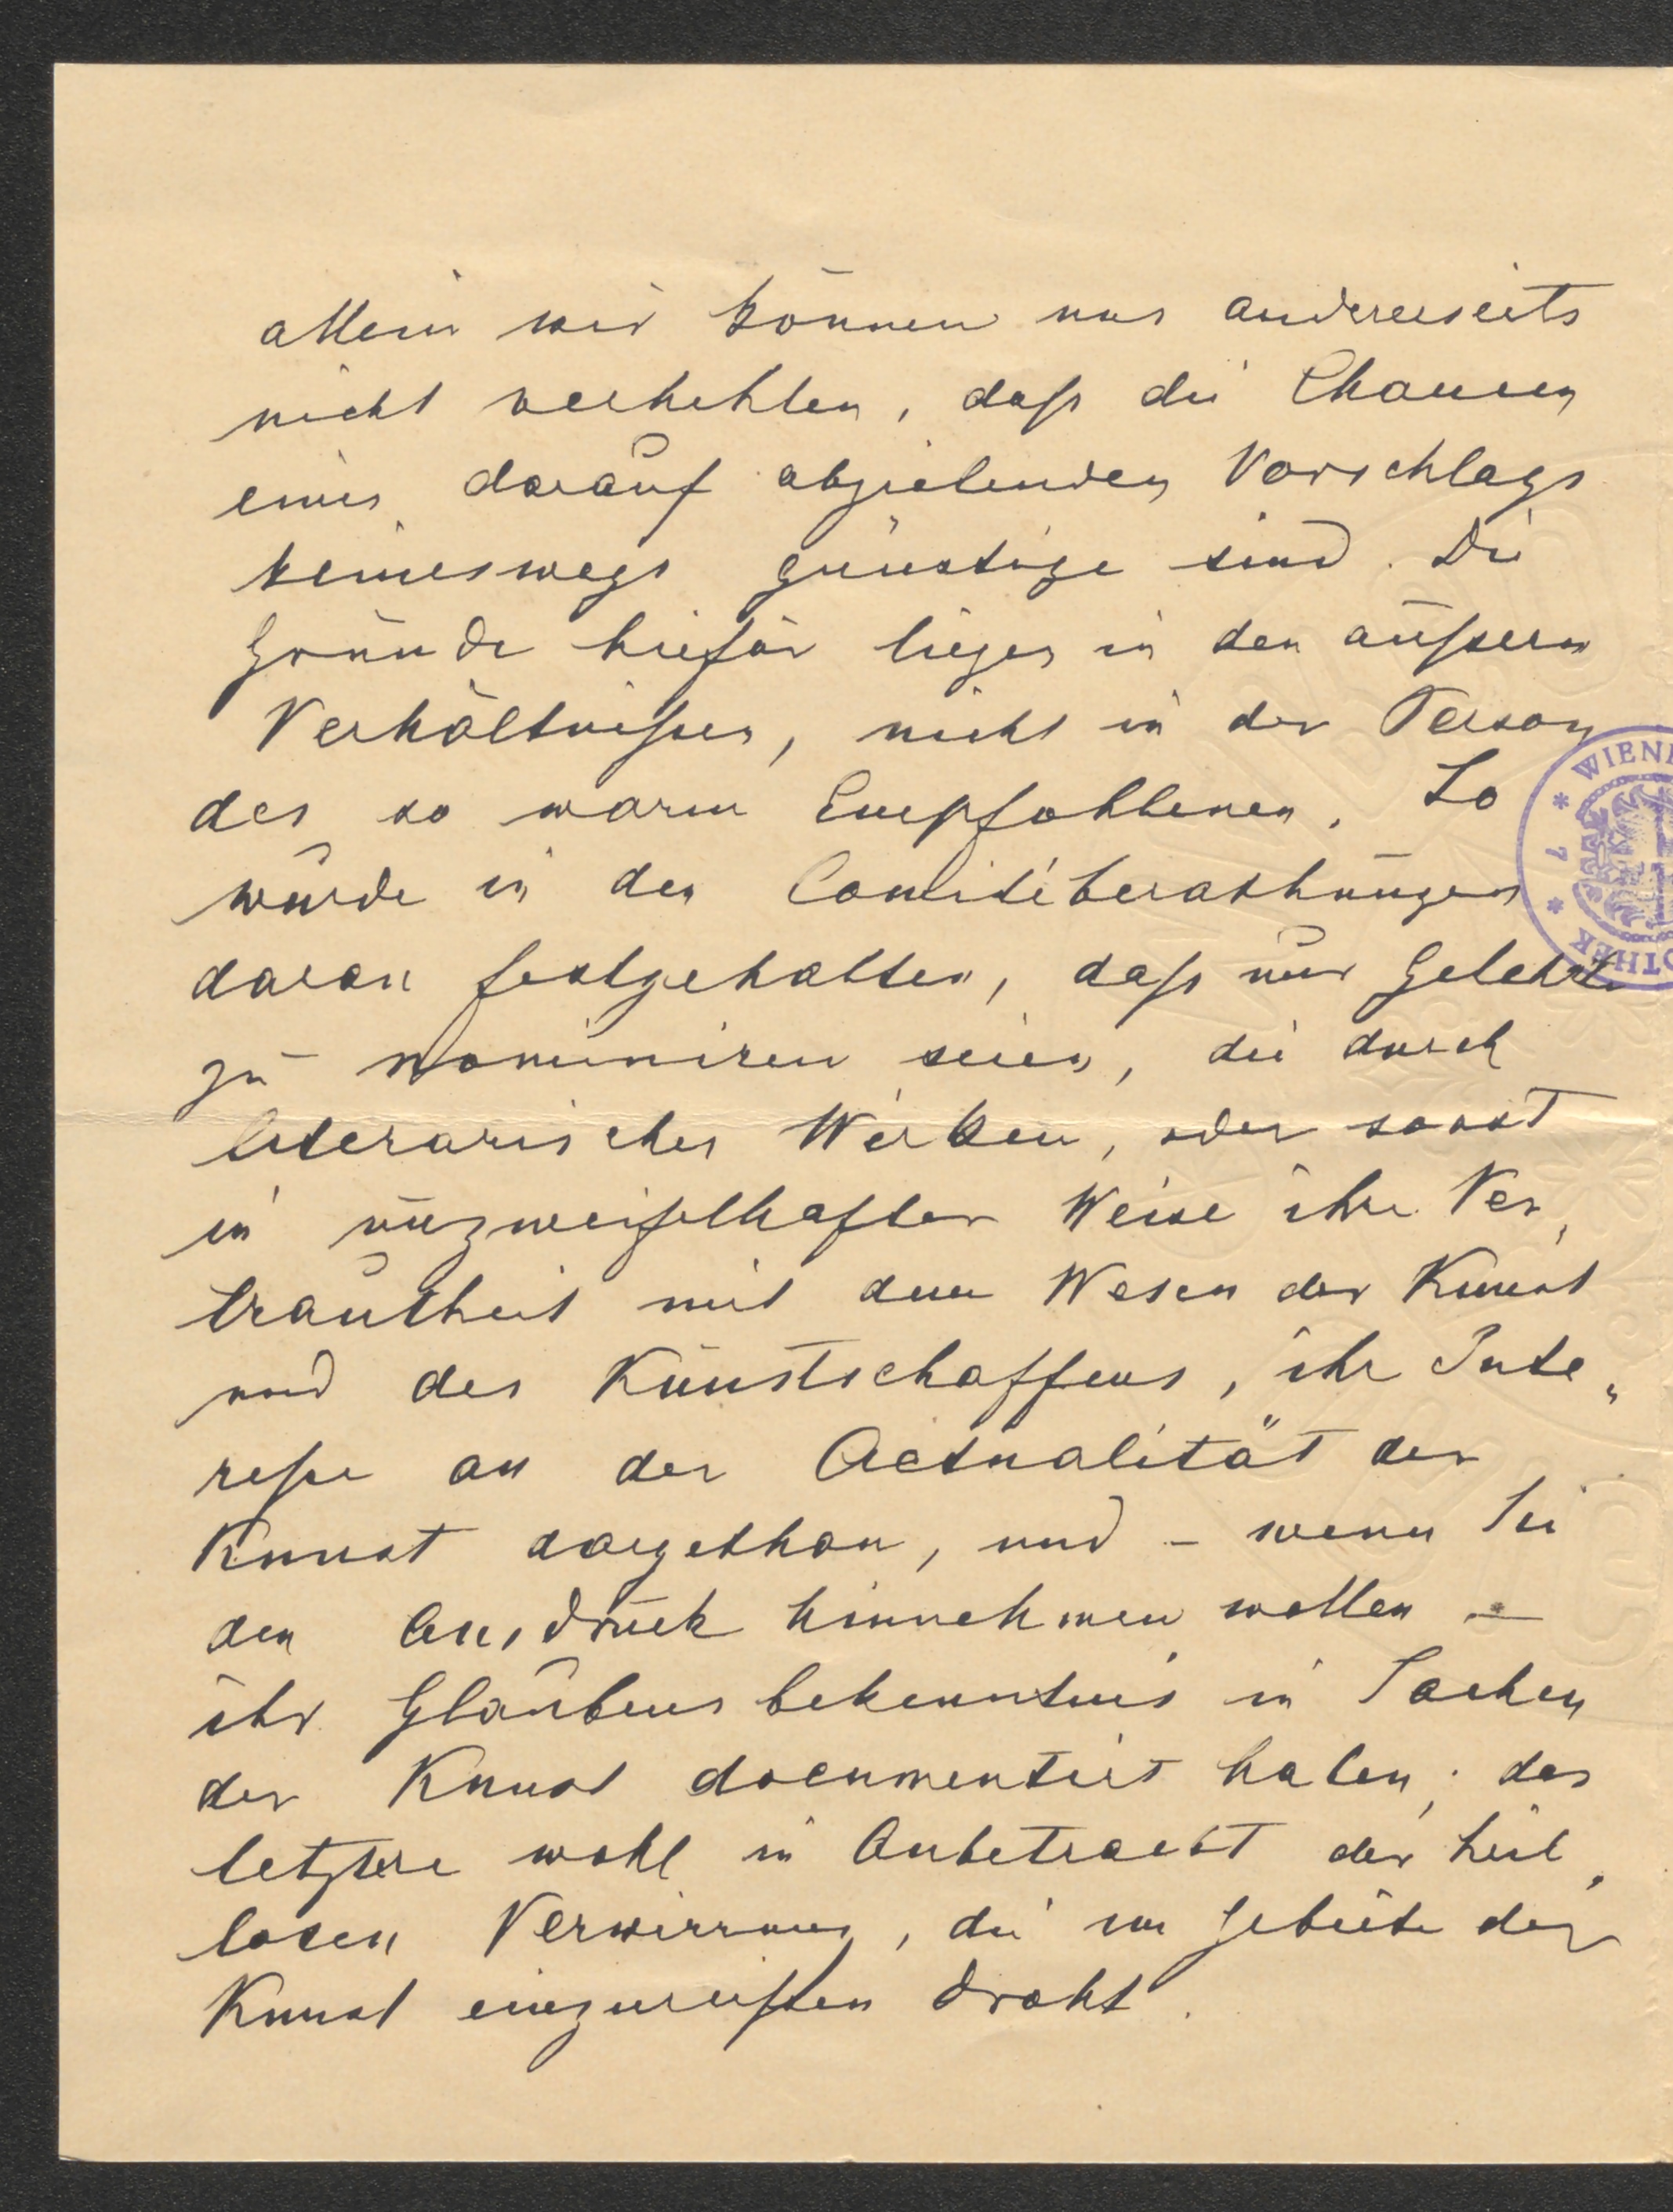 allein wir können uns andererseits
nicht verhehlen, daß die Chancen
eines darauf abzielenden Vorschlags
keineswegs günstige sind. Die
Gründe hiefür liegen in den äußern
Verhältnißen, nicht in der Person
des so warm Empfohlenen. So
wurde in den Comitéberathungen
daran festgehalten, daß nur Gelehrte
zu nominiren seien, die durch
literarisches Werken, oder sonst
in unzweifelhafter Weise ihre Ver„
trautheit mit dem Wesen der Kunst
und des Kunstschaffens, ihr Inte„
reße an der Actualität der
Kunst dargethan, und – wenn Sie
den Ausdruck hinnehmen wollen –
ihr Glaubensbekenntnis in Sachen
der Kunst documentirt haben; das
letztere wohl in Anbetracht der heil„
losen Verwirrung, die im Gebiete der
Kunst einzureißen droht.
WIENE
* 7 *
OTHEK